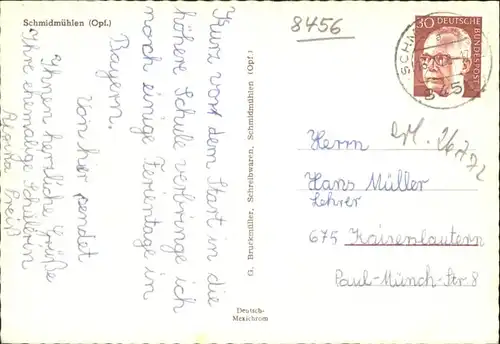 Schmidmühlen (Opf.)
8456
30 DEUTSCHE
BUNDESPOST
SCHM
Kurz vor dem Start in die
höhere Schule verbringe ich
noch einige Ferientage in
Bayern.
Von hier sendet
Ihnen herzliche Grüße
Ihre ehemalige Schülerin
G. Bruckmüller, Schreibwaren, Schmidmühlen (Opf.)
Deutsch-
Mexichrom
Herrn
Hans Müller
Lehrer
675 Kaiserslautern
Paul-Münch-Str 8